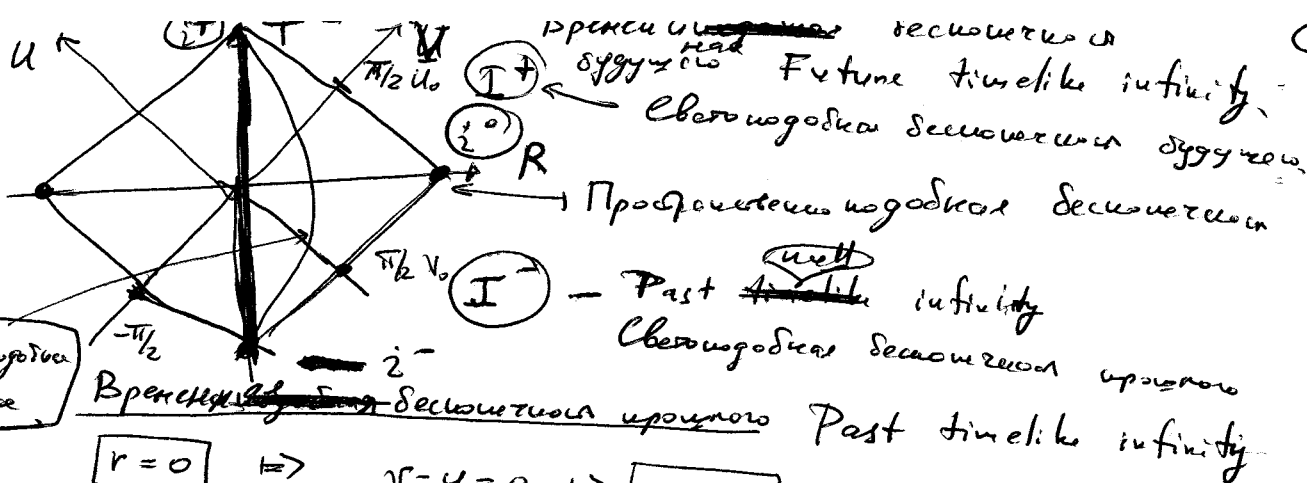 i⁺ T V Временная бесконечность
U π/2 U₀ I⁺ будущего Future timelike infinity
Светоподобная бесконечность будущего
i⁰ R
Пространственноподобная бесконечность
π/2 V₀ I⁻ - Past null infinity
Светоподобная бесконечность прошлого
-π/2 i⁻
Временная бесконечность прошлого Past timelike infinity
r = 0 => v - u = 0 =>